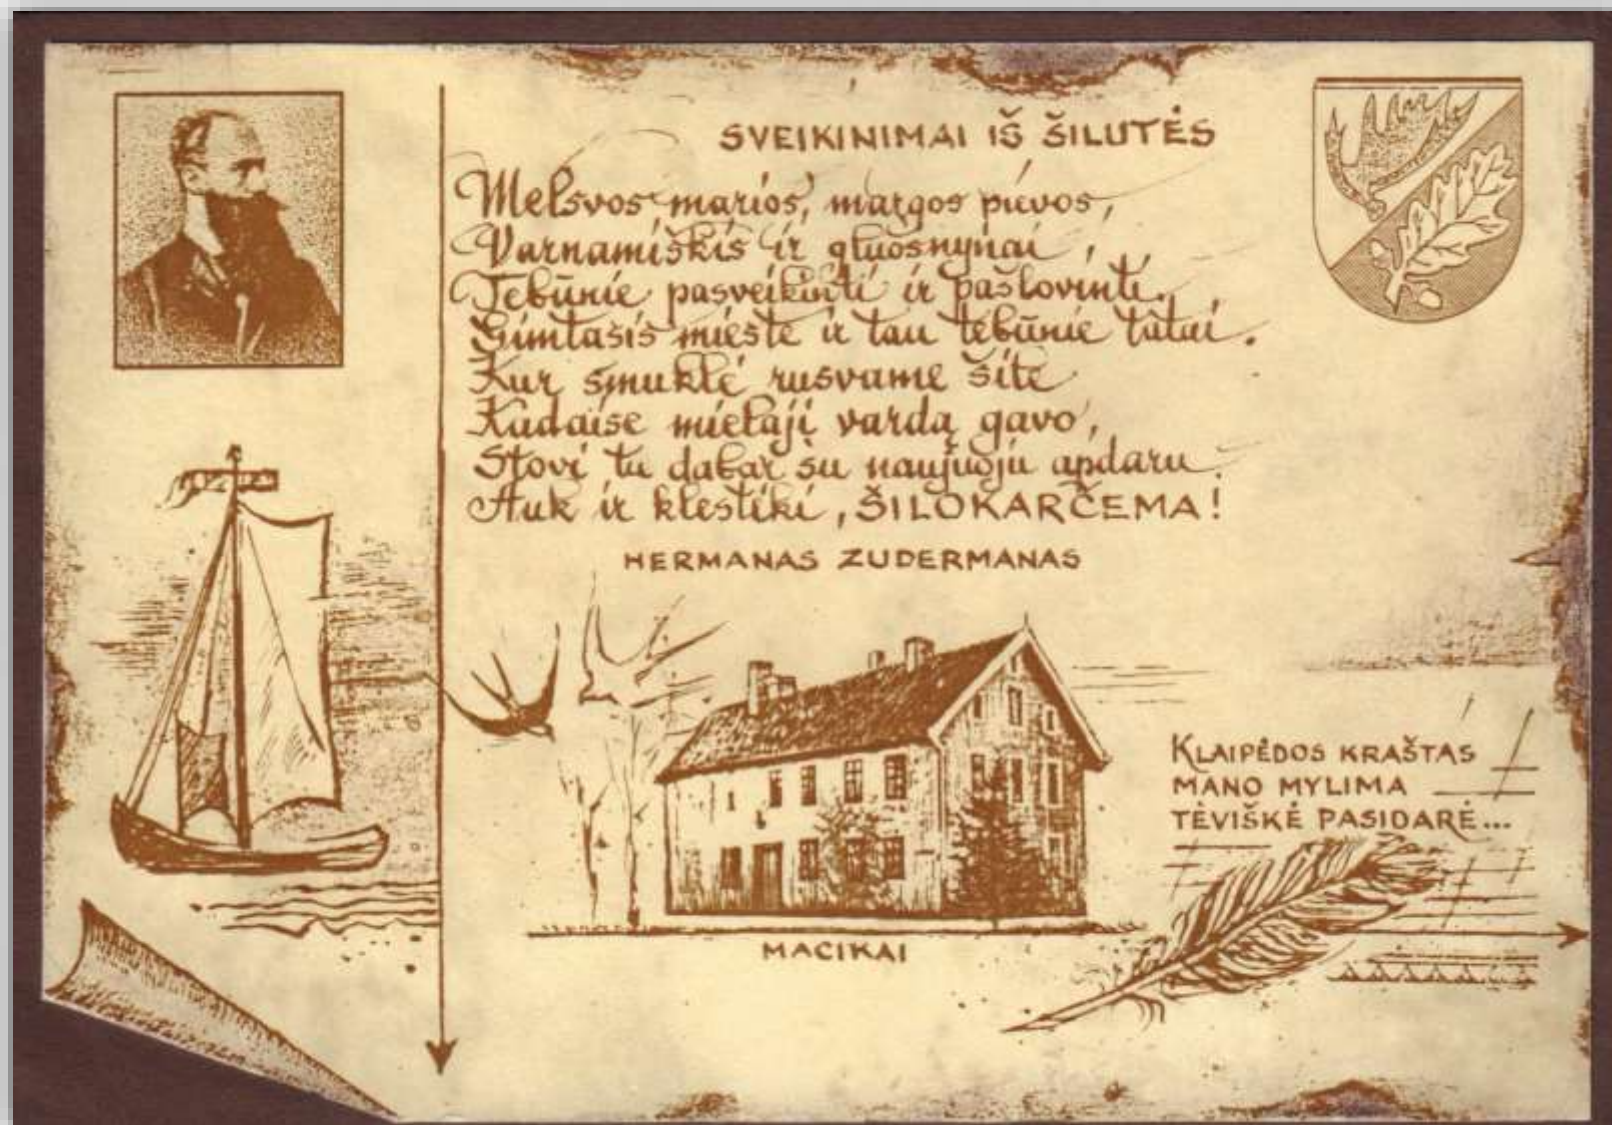 SVEIKINIMAI IŠ ŠILUTĖS
Melsvos marios, margos pievos,
Varnamiškis ir gluosnynai,
Tebūnie pasveikinti ir pašlovinti.
Gimtasis mieste ir tau tebūnie tatai.
Kur smuklė rusvame šile
Kadaise mieląjį vardą gavo,
Stovi tu dabar su naujuoju apdaru.
Auk ir klestėki, ŠILOKARČEMA!
HERMANAS ZUDERMANAS
KLAIPĖDOS KRAŠTAS
MANO MYLIMA
TĖVIŠKĖ PASIDARĖ...
MACIKAI